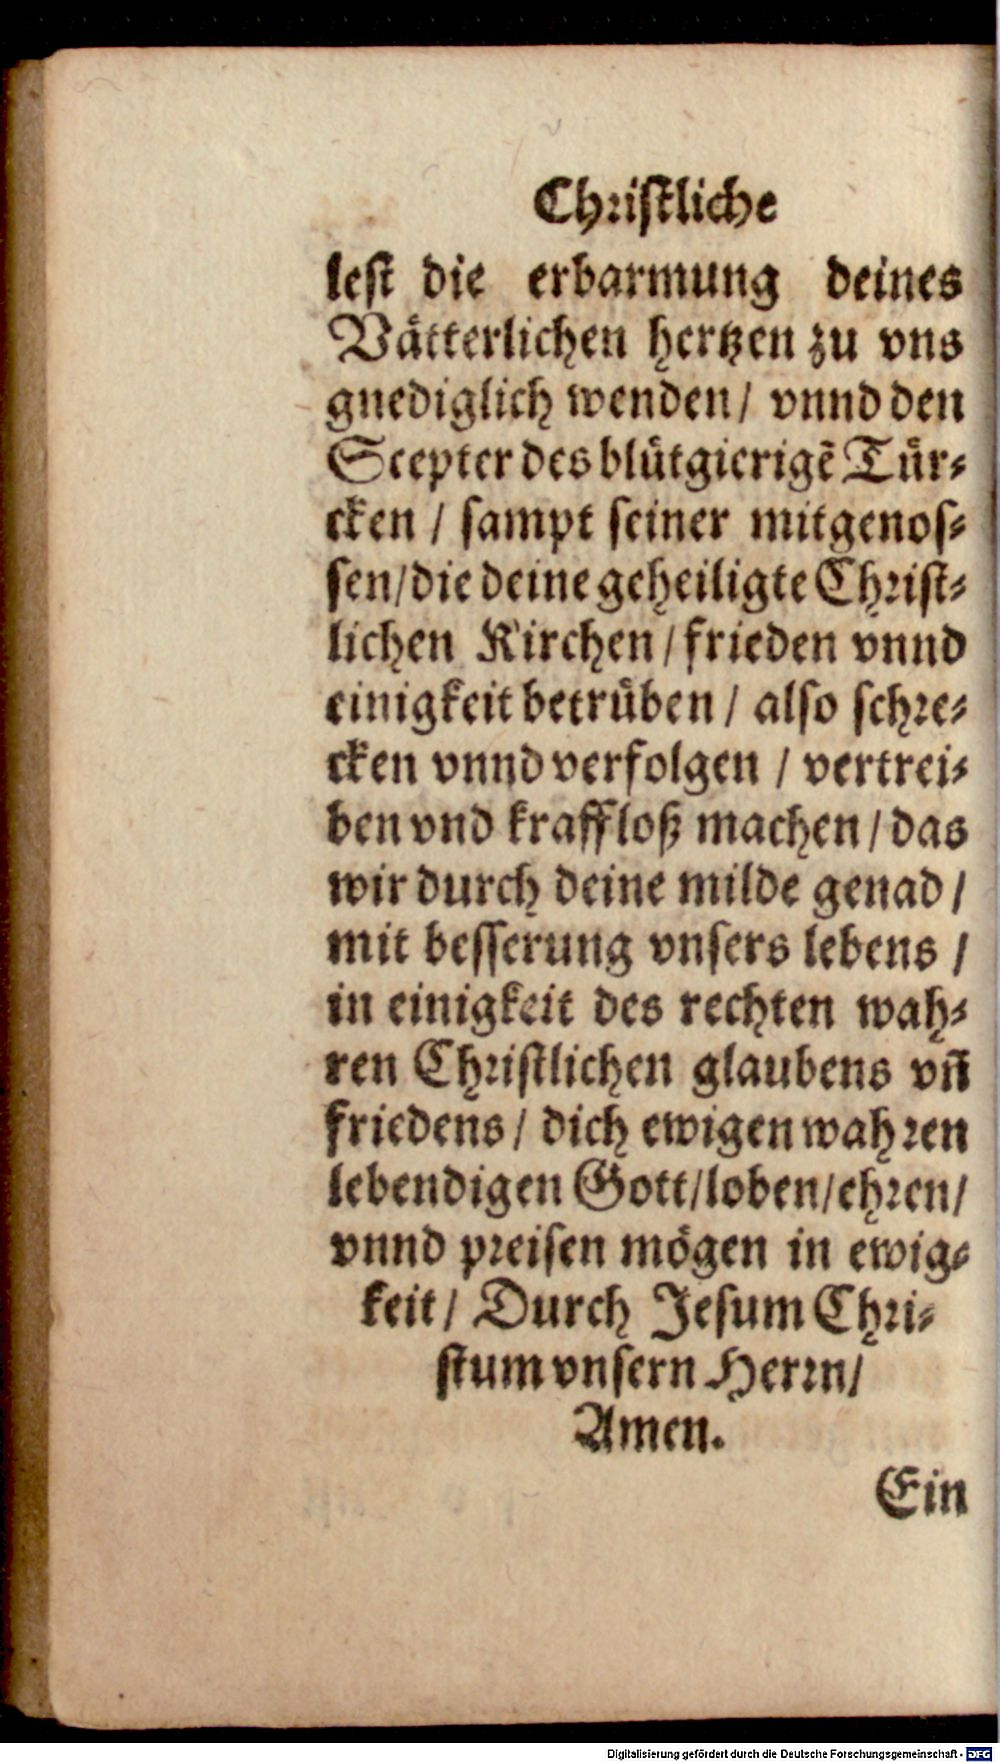 Chriſtliche
leſt die erbarmung deines
Vätterlichen hertzen zu vns
gnediglich wenden/ vnnd den
Scepter des blütgierigẽ Tür⸗
cken / ſampt ſeiner mitgenoſ⸗
ſen/die deine geheiligte Chriſt⸗
lichen Kirchen/frieden vnnd
einigkeit betrüben/ alſo ſchre⸗
cken vnnd verfolgen / vertrei⸗
ben vnd kraffloß machen/das
wir durch deine milde genad/
mit beſſerung vnſers lebens /
in einigkeit des rechten wah⸗
ren Chriſtlichen glaubens vñ
friedens/ dich ewigen wahren
lebendigen Gott/loben/ehren/
vnnd preiſen mögen in ewig⸗
keit/ Durch Jeſum Chri⸗
ſtum vnſern Herrn/
Amen.
Ein
Digitalisierung gefördert durch die Deutsche Forschungsgemeinschaft - DFG